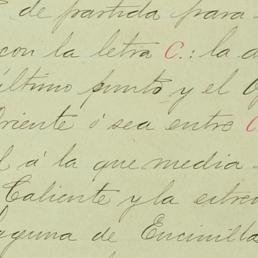 de partida para
con la letra C.: la d
último punto y el O
Oriente ó sea entre C
á la que media
Caliente y la estre
laguna de Encinilla